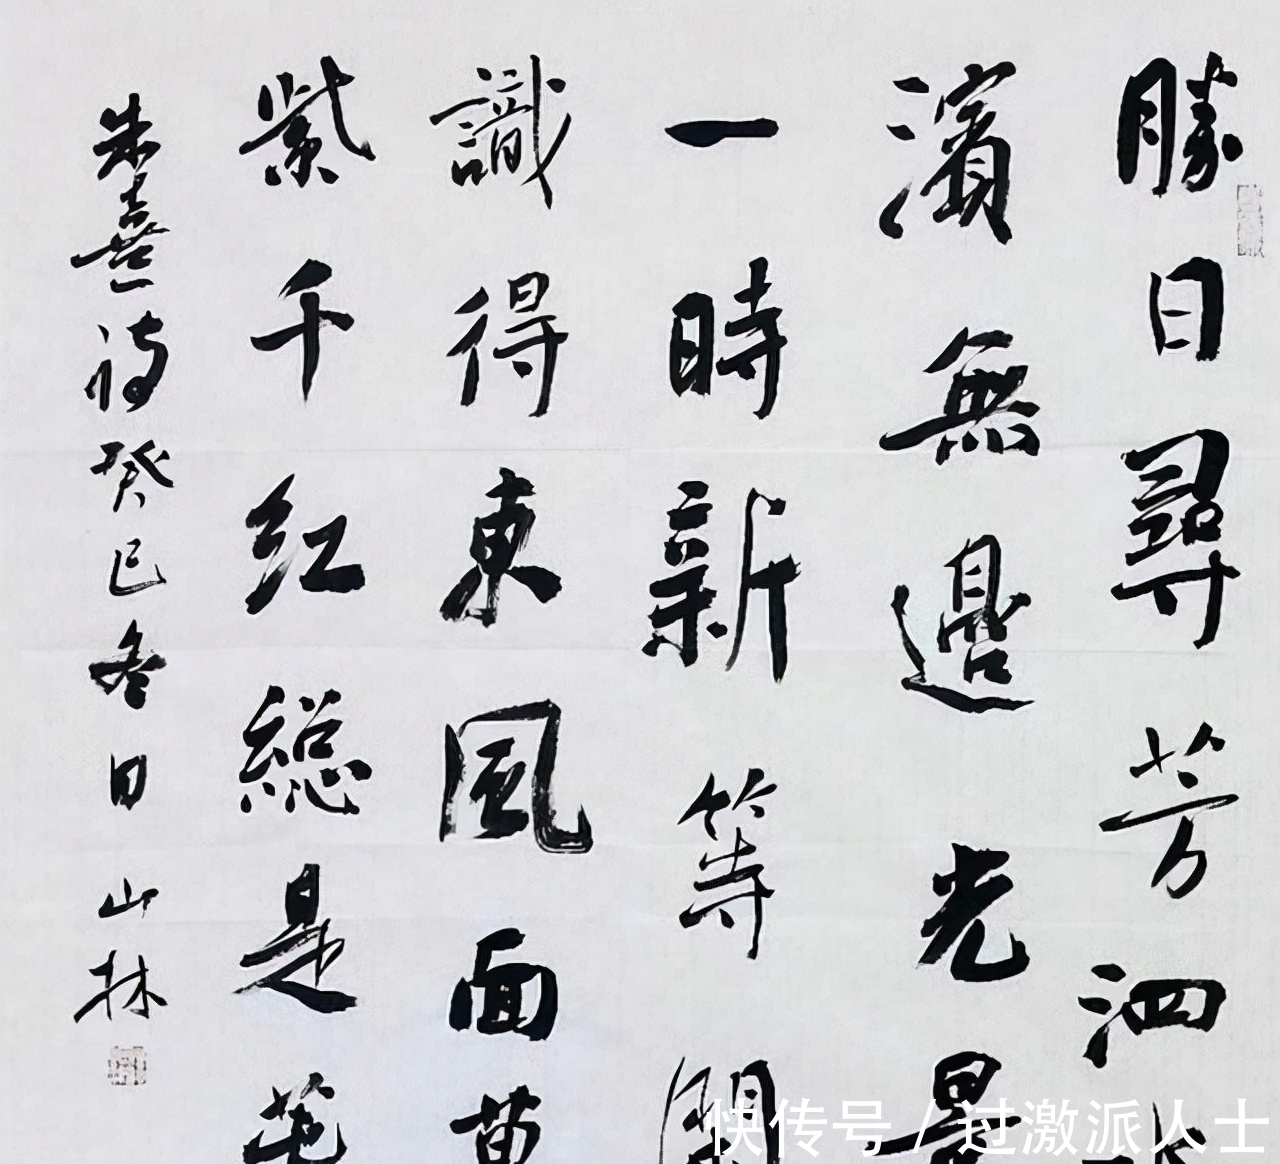 勝日尋芳泗
濱無邊光景
一時新等
識得東風面萬
紫千红総是
朱熹詩癸巳冬日山林
快传号 / 过激派人士